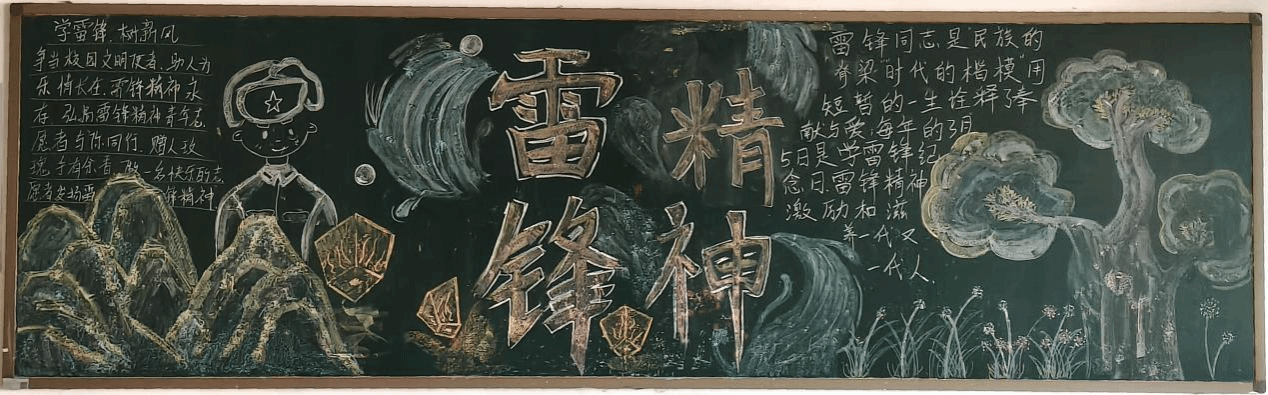 学雷锋、树新风
争当校园文明使者、助人为
乐情长在、雷锋精神永
存 弘扬雷锋精神青年志
愿者与你同行、赠人玫
瑰 手有余香 做一名快乐的志
愿者发扬雷锋精神
雷 精
锋 神
雷锋同志是"民族的
脊梁"时代的楷模"用
短暂的一生诠释了奉
献与爱,每年的3月
5日是学雷锋纪
念日.雷锋精神
激励和滋
养一代又
一代人